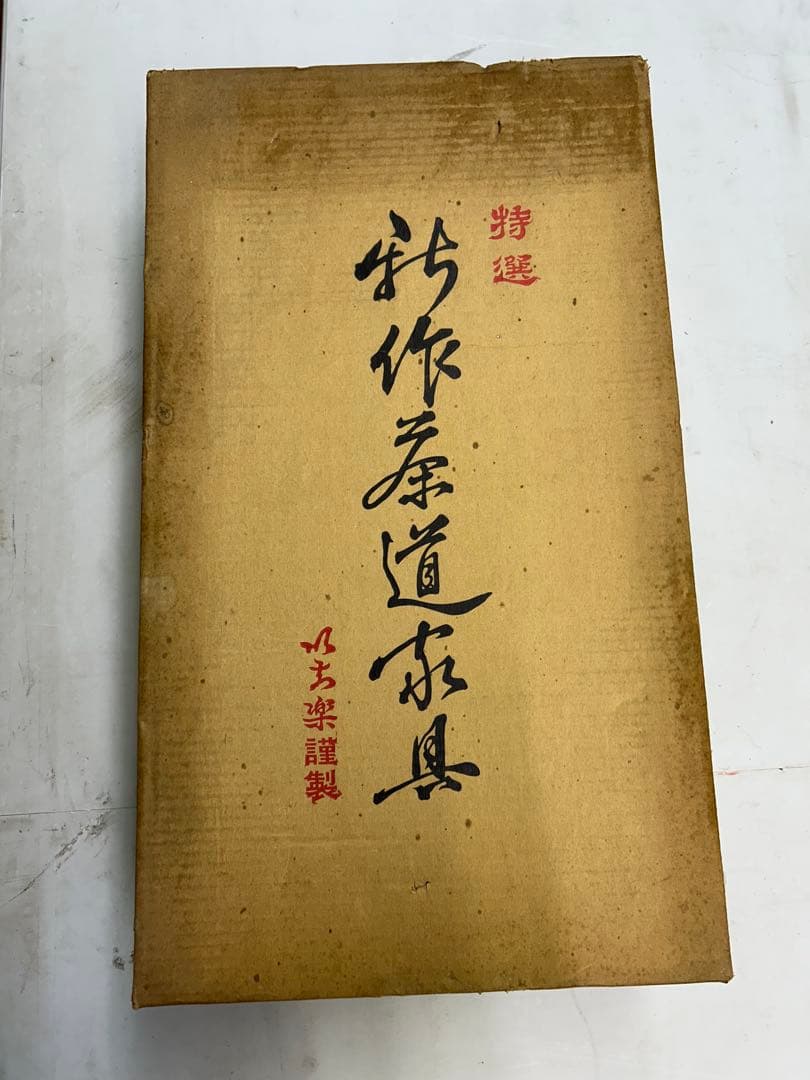 特選
新作茶道家具
以志楽謹製